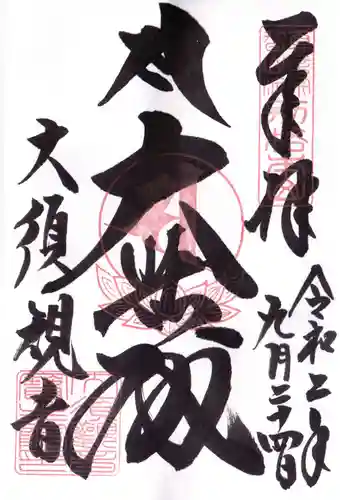 奉拝
令和二年
九月二十四日
大悲殿
大須観音